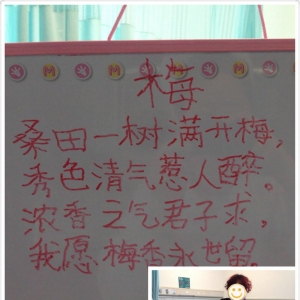 梅
桑田一树满开梅，
秀色清气惹人醉。
浓香之气君子求，
我愿梅香永世留。